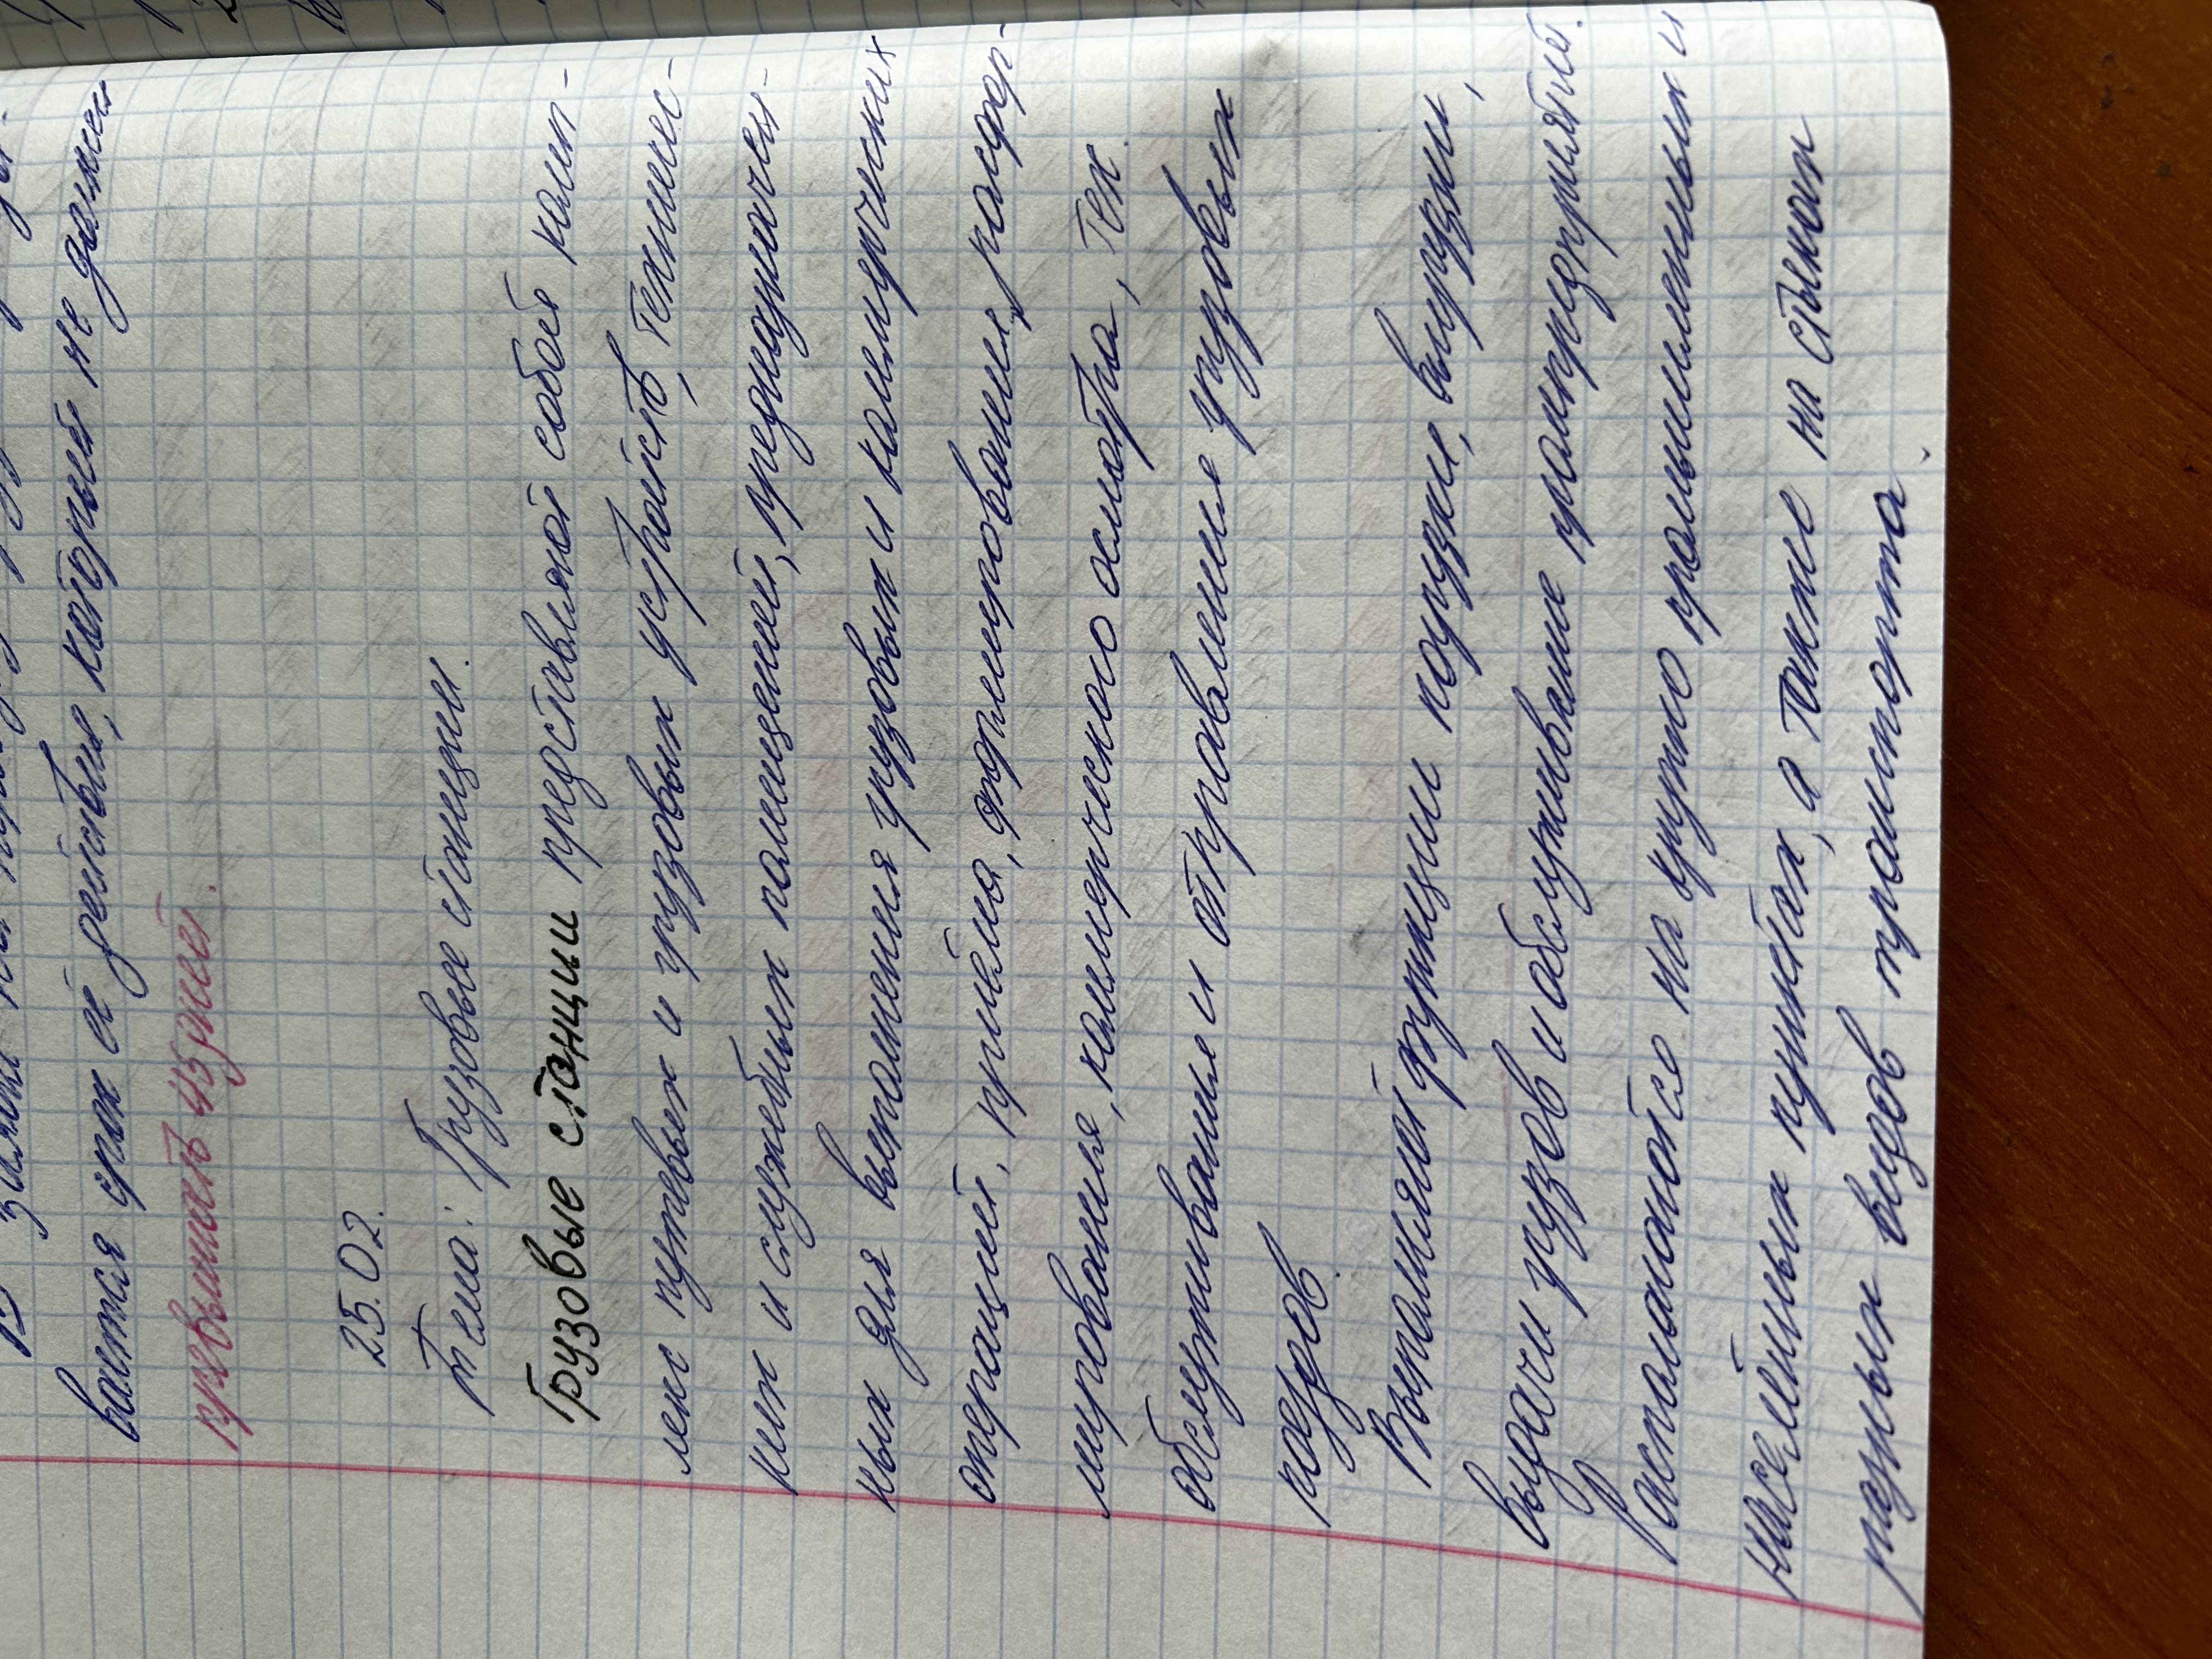 вается срок её действия, который не должен
превышать 45 дней.
25.02.
Тема: Грузовые станции.
Грузовые станции представляют собой комп-
лекс путевых и грузовых устройств, техничес-
ких и служебных помещений, предназначен-
ных для выполнения грузовых и коммерческих
операций, приёма, формирования, расфор-
мирования, коммерческого осмотра, тех.
обслуживания и отправления грузовых
поездов.
Выполняют функции погрузки, выгрузки,
выдачи грузов и обслуживание промпредприятий.
Располагаются на крупно промышленных и
населённых пунктах, а также на стыках
разных видов транспорта.